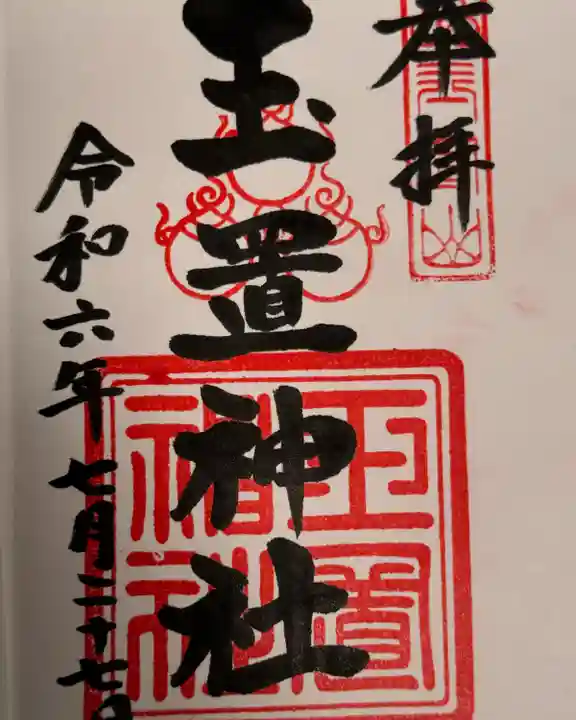 奉拝
玉置神社
令和六年七月二十七日